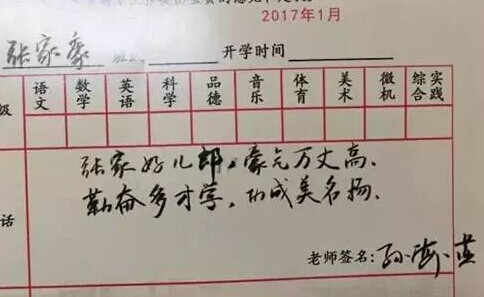 2017年1月
张家豪 开学时间
级 语文 数学 英语 科学 品德 音乐 体育 美术 微机 综合实践
张家好儿郎,豪气万丈高、
话 勤奋多才学,功成美名扬、
老师签名:孙海燕